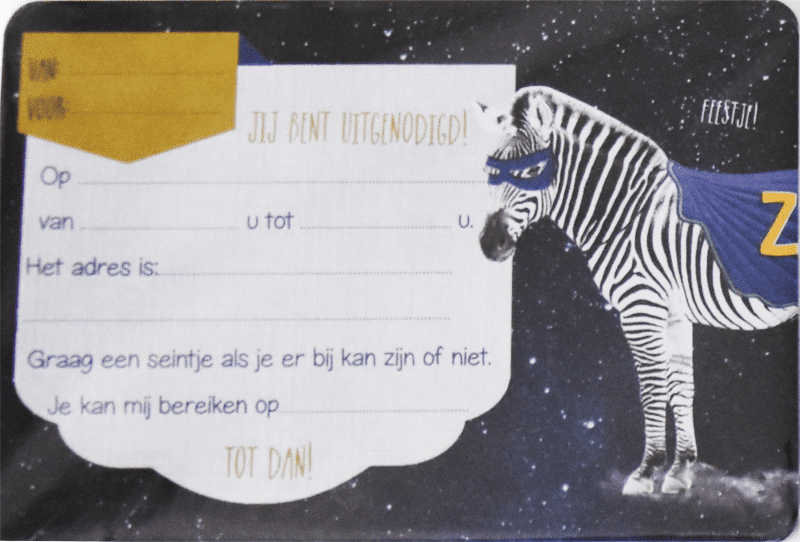 VAN:
VOOR:
JIJ BENT UITGENODIGD!
FEESTJE!
Op
van u tot u.
Het adres is:
Graag een seintje als je er bij kan zijn of niet.
Je kan mij bereiken op
TOT DAN!
Z